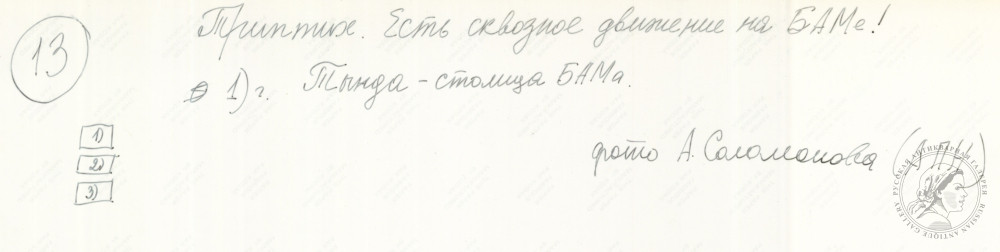 13
Триптих. Есть сквозное движение на БАМе!
1) г. Тында - столица БАМа.
1)
2)
3)
фото А. Соломонова (АПН)
РУССКАЯ АНТИКВАРНАЯ ГАЛЕРЕЯ RUSSIAN ANTIQUE GALLERY